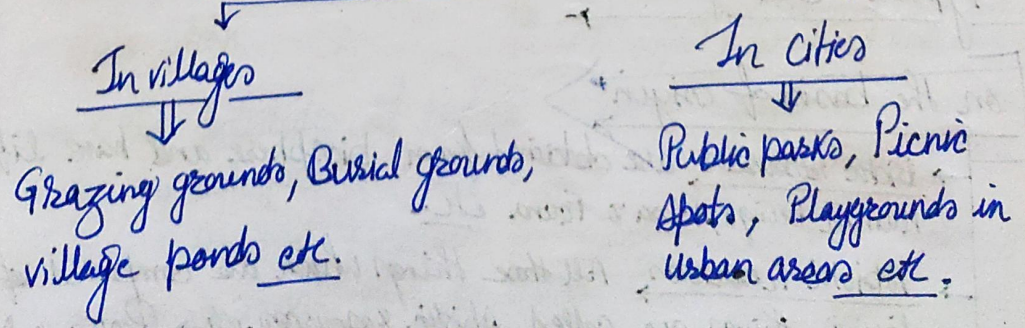 In villages
Grazing grounds, Burial grounds,
village ponds etc.
In cities
Public parks, Picnic
spots, Playgrounds in
urban areas etc.